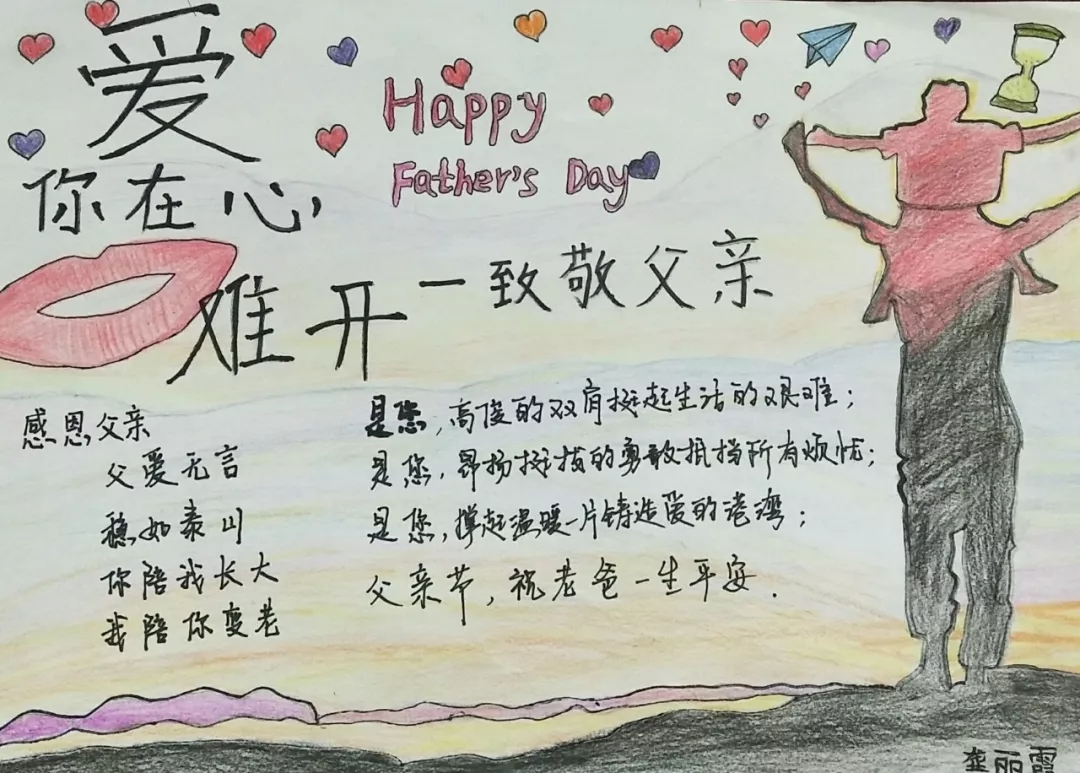 爱
你在心,
难开一致敬父亲
Happy
Father's Day
感恩父亲
父爱无言
稳如泰山
你陪我长大
我陪你变老
是您,高俊的双肩挺起生活的艰难;
是您,昂扬挺拔的勇敢抵挡所有烦忧;
是您,撑起温暖一片铸造爱的港湾;
父亲节,祝老爸一生平安.
龚丽霞